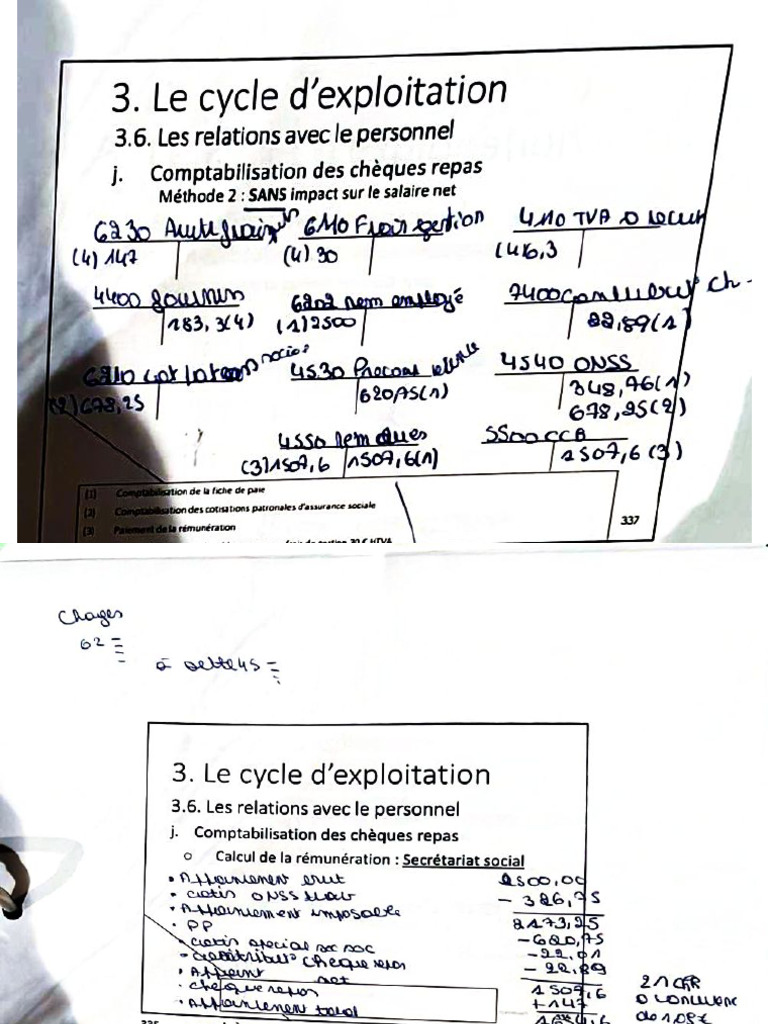 3. Le cycle d'exploitation
3.6. Les relations avec le personnel
j. Comptabilisation des chèques repas
Méthode 2 : SANS impact sur le salaire net
6230 6110 Frais gestion 4110 TVA à récup
(4) 147 (4) 30 (4)6,3
4400 fournis 6202 rem employé 7400 ch
183,3(4) (1)2500 22,89(1)
6210 cot patron socio 4530 Précom 4540 ONSS
(2)678,25 620,75(1) 348,76(1)
678,25(2)
4550 rem dues 5500 CCB
(3)1507,6 1507,6(1) 1507,6(3)
(1) Comptabilisation de la fiche de paie
(2) Comptabilisation des cotisations patronales d'assurance sociale
(3) Paiement de la rémunération
337
Charges
62
à dette 45
3. Le cycle d'exploitation
3.6. Les relations avec le personnel
j. Comptabilisation des chèques repas
o Calcul de la rémunération : Secrétariat social
• Appointement brut 2500,00
• cotis ONSS - 326,75
• Appointement imposable 2173,25
• PP -620,75
• cotis special sec soc -22,01
• contribut° cheque repas - 22,89
• Appoint net 1507,6
• cheque repas +147
• Appointement total
21 CHR
de 1,09€